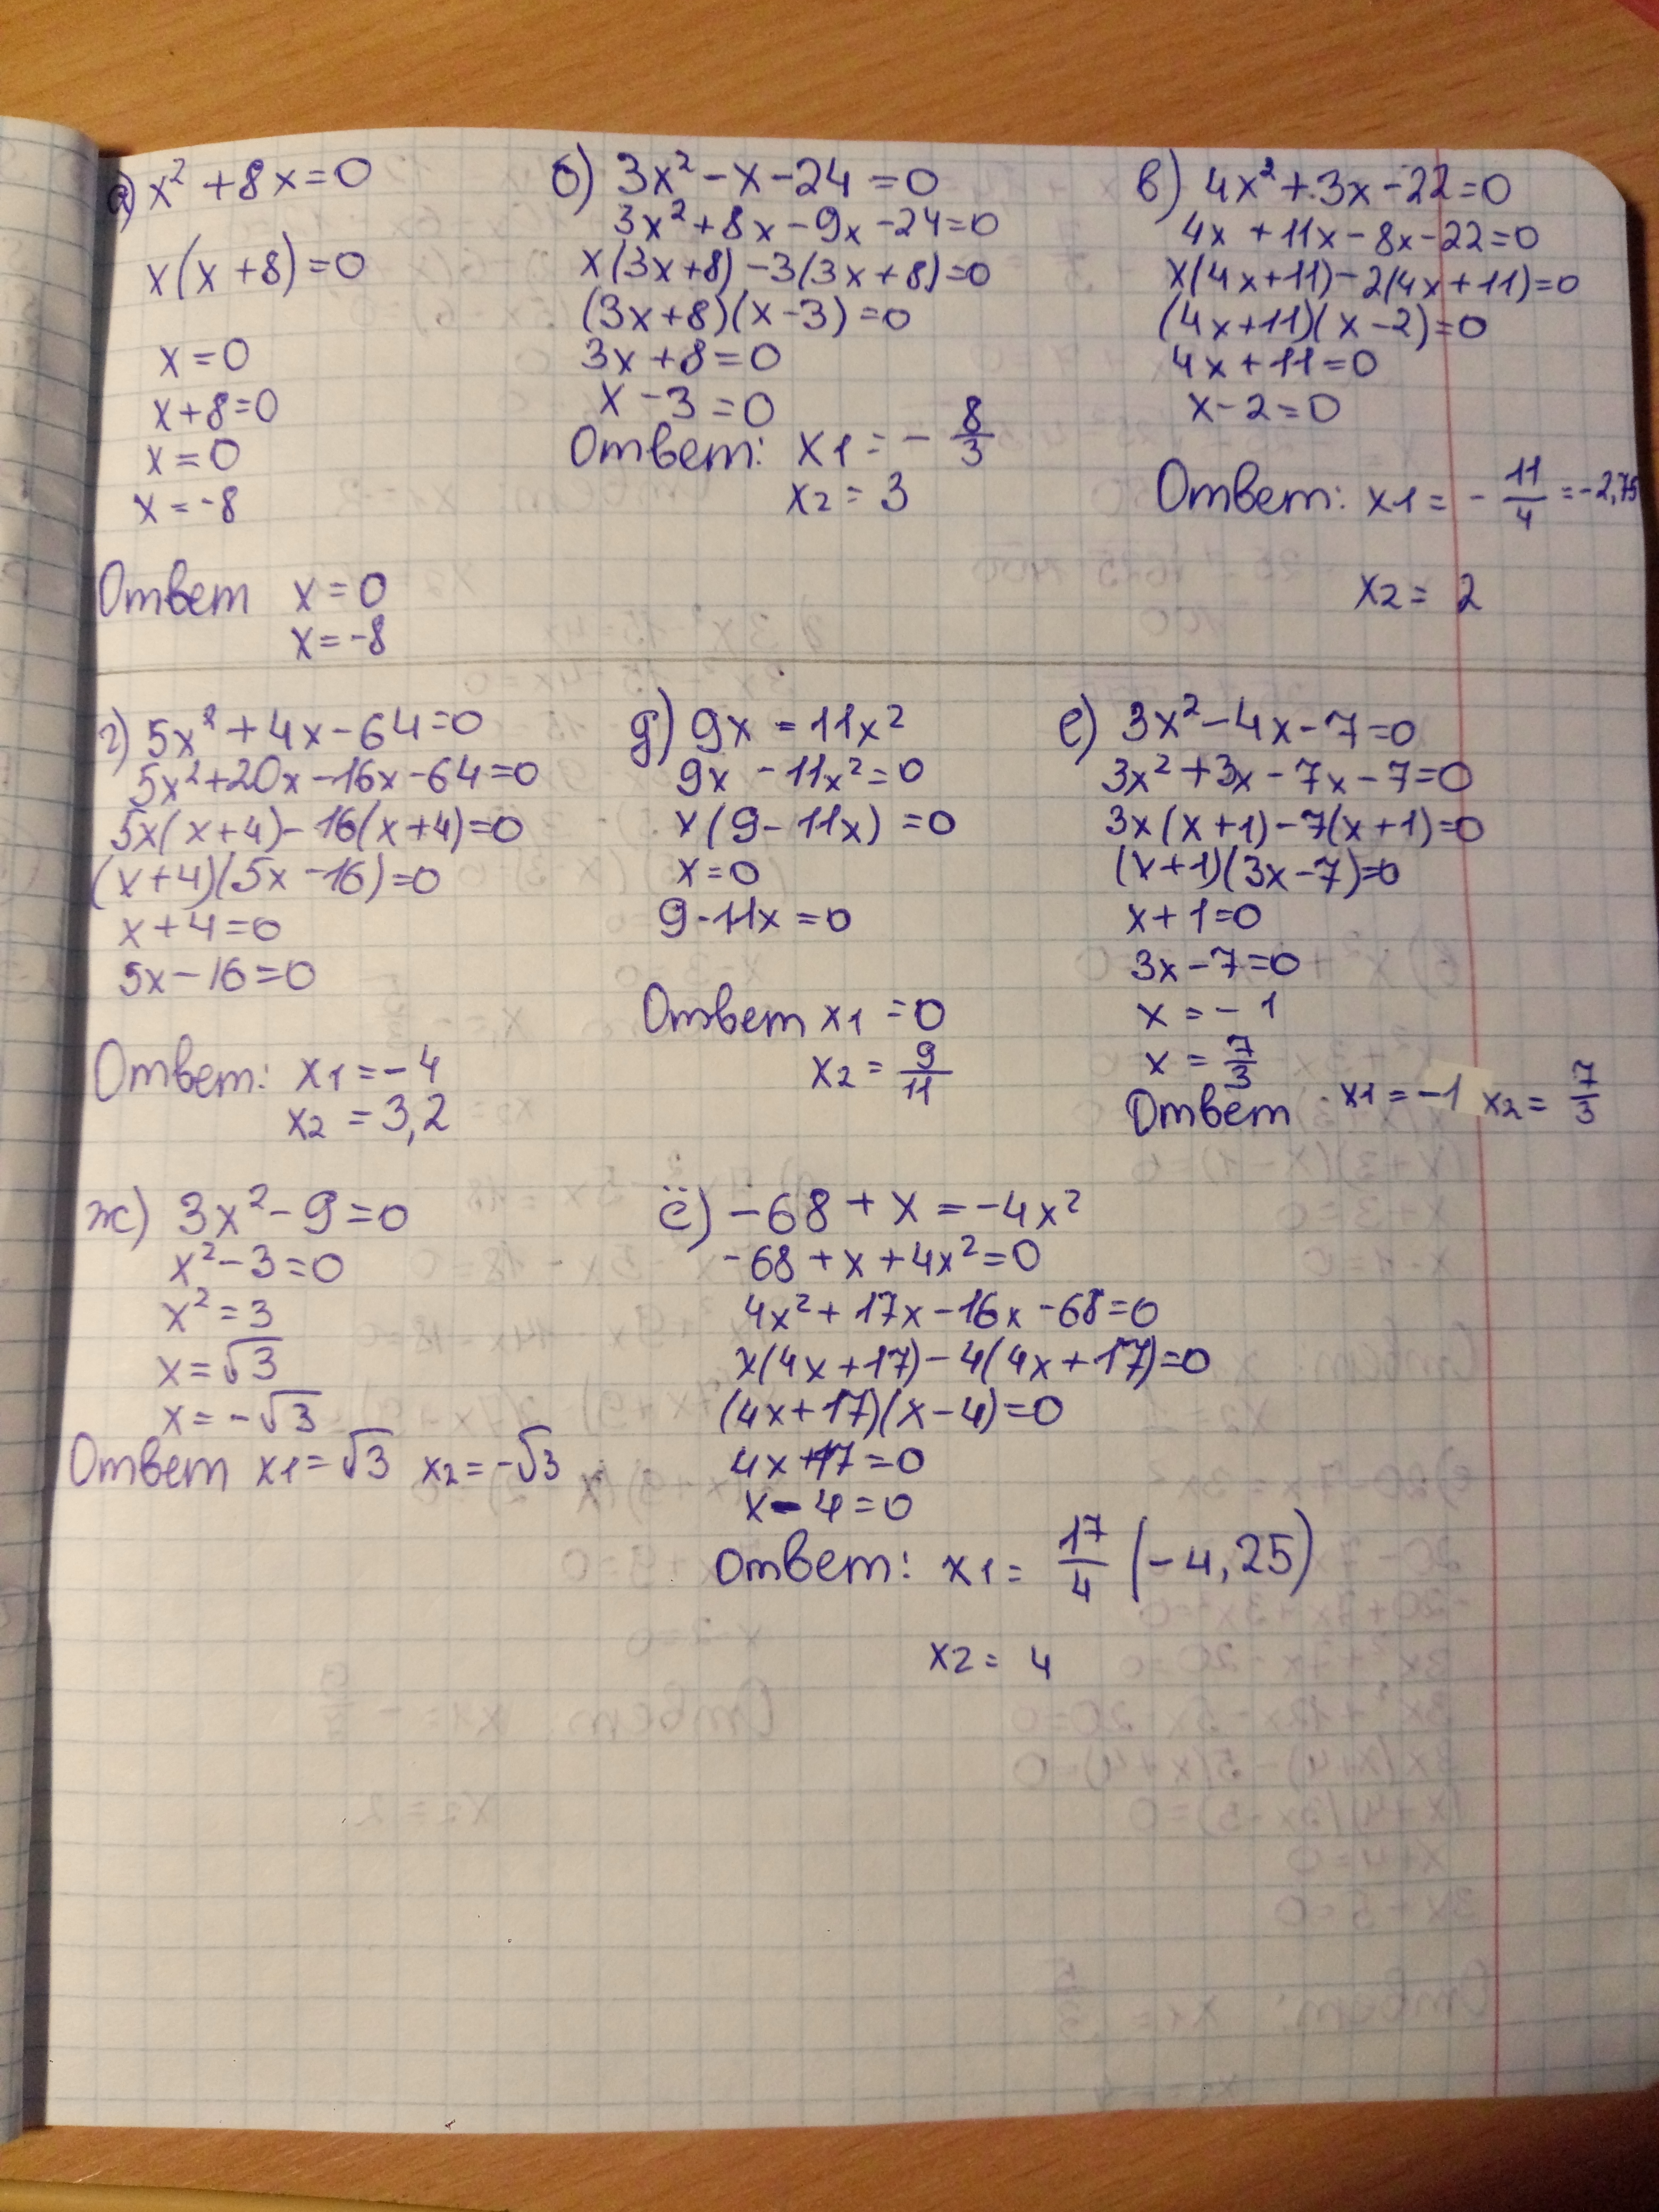 а) x² + 8x = 0
x(x + 8) = 0
x = 0
x + 8 = 0
x = 0
x = -8
Ответ x = 0
x = -8
б) 3x² - x - 24 = 0
3x² + 8x - 9x - 24 = 0
x(3x + 8) - 3(3x + 8) = 0
(3x + 8)(x - 3) = 0
3x + 8 = 0
x - 3 = 0
Ответ: x1 = - 8/3
x2 = 3
в) 4x² + 3x - 22 = 0
4x + 11x - 8x - 22 = 0
x(4x + 11) - 2(4x + 11) = 0
(4x + 11)(x - 2) = 0
4x + 11 = 0
x - 2 = 0
Ответ: x1 = - 11/4 = -2,75
x2 = 2
г) 5x² + 4x - 64 = 0
5x² + 20x - 16x - 64 = 0
5x(x + 4) - 16(x + 4) = 0
(x + 4)(5x - 16) = 0
x + 4 = 0
5x - 16 = 0
Ответ: x1 = -4
x2 = 3,2
д) 9x = 11x²
9x - 11x² = 0
x(9 - 11x) = 0
x = 0
9 - 11x = 0
Ответ x1 = 0
x2 = 9/11
е) 3x² - 4x - 7 = 0
3x² + 3x - 7x - 7 = 0
3x(x + 1) - 7(x + 1) = 0
(x + 1)(3x - 7) = 0
x + 1 = 0
3x - 7 = 0
x = -1
x = 7/3
Ответ x1 = -1 x2 = 7/3
ж) 3x² - 9 = 0
x² - 3 = 0
x² = 3
x = √3
x = -√3
Ответ x1 = √3 x2 = -√3
ё) -68 + x = -4x²
-68 + x + 4x² = 0
4x² + 17x - 16x - 68 = 0
x(4x + 17) - 4(4x + 17) = 0
(4x + 17)(x - 4) = 0
4x + 17 = 0
x - 4 = 0
Ответ: x1 = 17/4 (-4,25)
x2 = 4